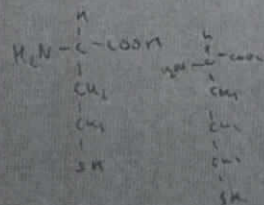 H
H₂N-C-COOH
CH₂
CH₂
SH
H
H₂N-C-COOH
CH₂
CH₂
CH₂
SH